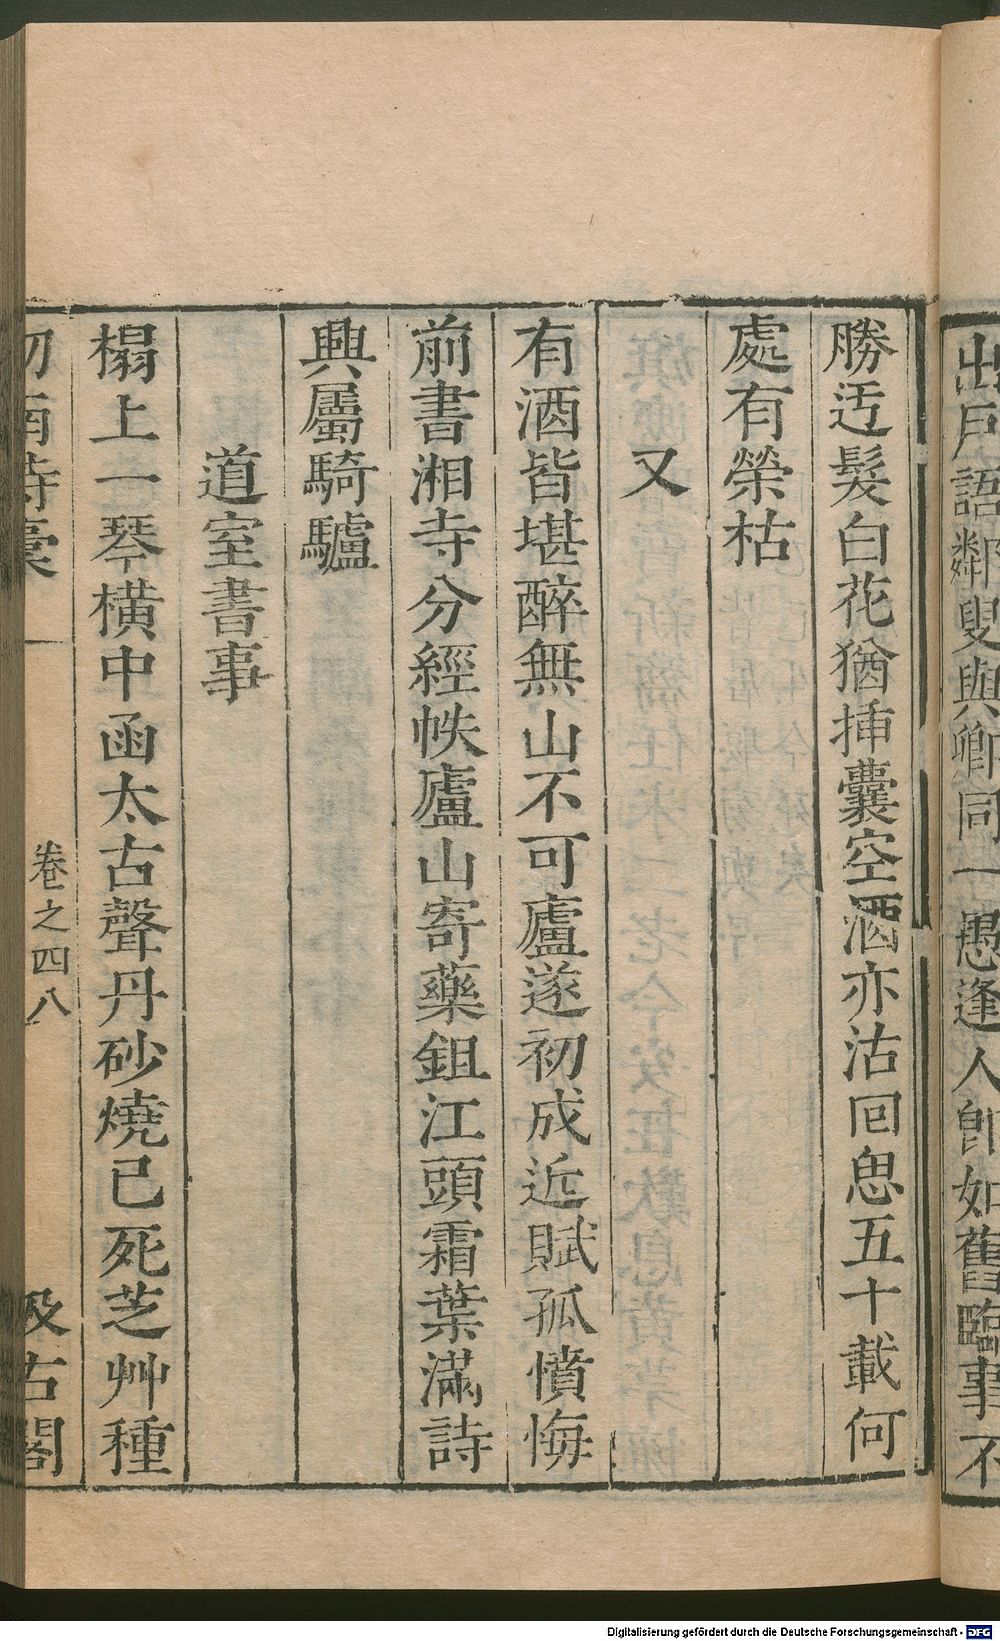 出戶語鄰叟與卿同一愚逢人卽如舊臨事不
勝迃髮白花猶挿囊空酒亦沽回思五十載何
處有榮枯
又
有酒皆堪醉無山不可廬遂初成近賦孤憤悔
前書湘寺分經帙廬山寄藥鉏江頭霜葉滿詩
興屬騎驢
道室書事
榻上一琴橫中函太古聲丹砂燒已死芝艸種
劒南詩稾
卷之四八
汲古閣
Digitalisierung gefördert durch die Deutsche Forschungsgemeinschaft - DFG